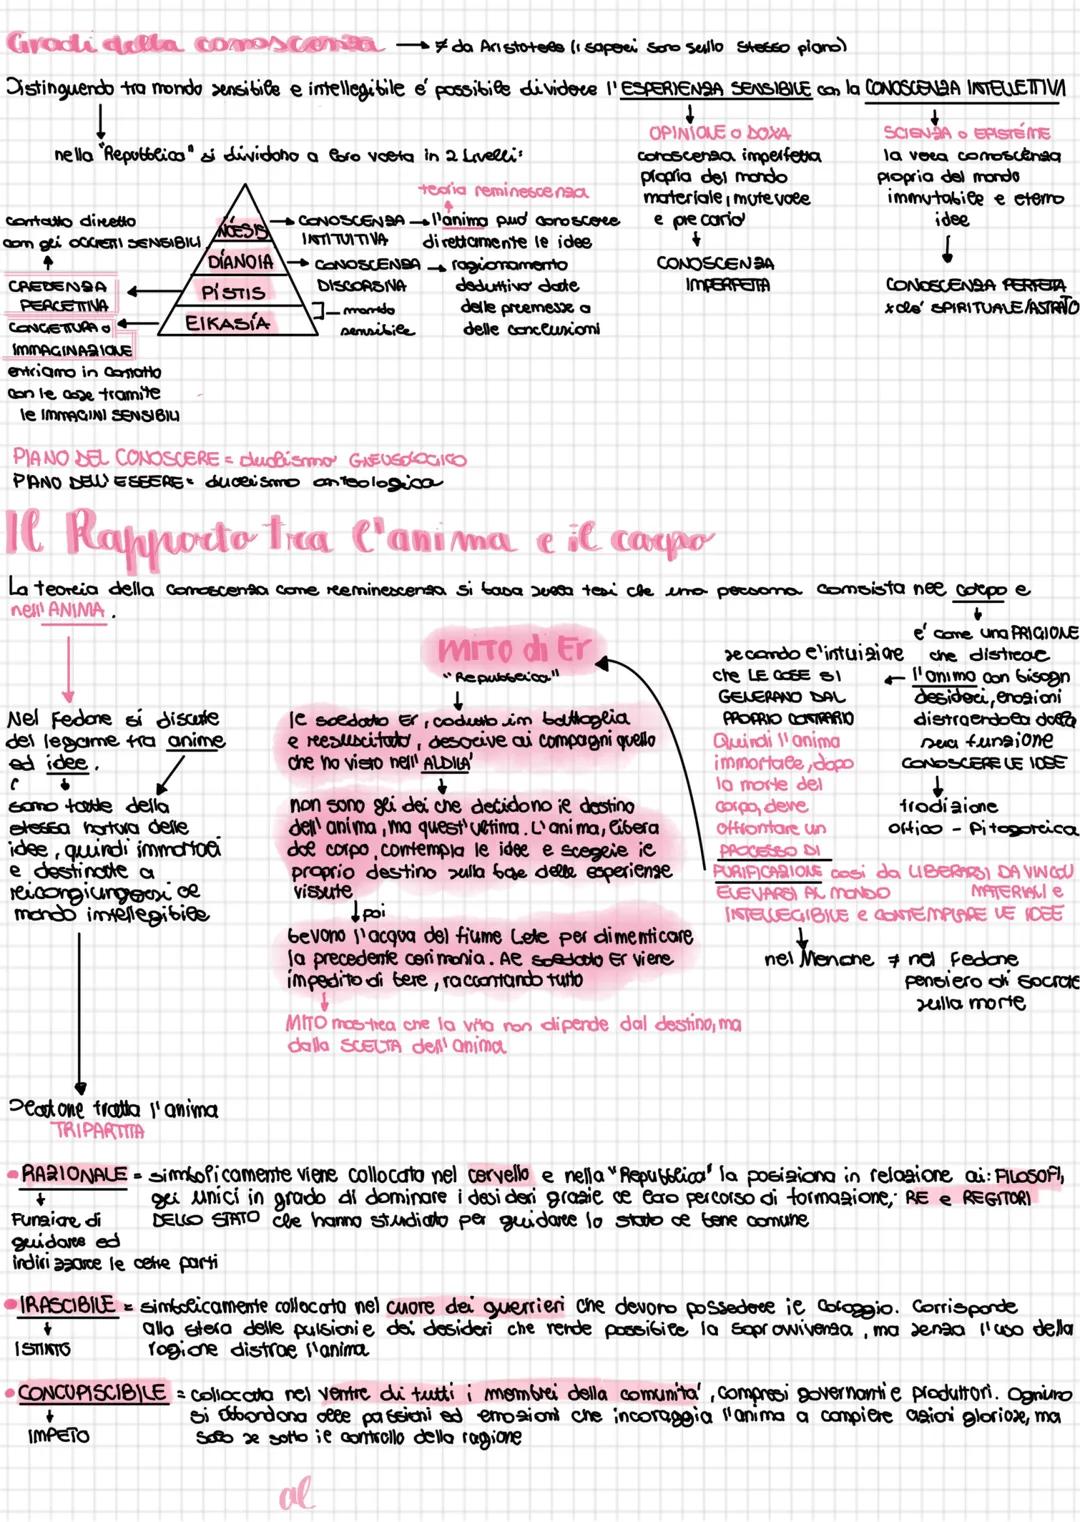 Gradi della conoscenza → ≠ da Aristotele (i saperi sono sullo stesso piano)
Distinguendo tra mondo sensibile e intellegibile é possibile dividere l'ESPERIENZA SENSIBILE con la CONOSCENZA INTELLETTIVA
nella "Repubblica" si dividono a loro volta in 2 livelli:
NÓESIS
DÍANOIA
PÍSTIS
EIKASÍA
contatto diretto
con gli OGGETTI SENSIBILI
CREDENZA
PERCETTIVA
CONGETTURA o
IMMAGINAZIONE
entriamo in contatto
con le cose tramite
le IMMAGINI SENSIBILI
teoria reminescenza
CONOSCENZA → l'anima può conoscere
INTITUITIVA direttamente le idee
CONOSCENZA → ragionamento
DISCORSIVA deduttivo date
delle premesse a
delle conclusioni
mondo
sensibile
OPINIONE o DOXA
conoscenza imperfetta
propria del mondo
materiale, mutevole
e precario
CONOSCENZA
IMPERFETTA
SCIENZA o EPISTÉME
la vera conoscenza
propria del mondo
immutabile e eterno
idee
CONOSCENZA PERFETTA
xché SPIRITUALE/ASTRATTO
PIANO DEL CONOSCERE = dualismo GNEUSOLOGICO
PIANO DELL'ESSERE = dualismo onteologica
Il Rapporto tra l'anima e il corpo
La teoria della conoscenza come reminescenza si basa sulla tesi che una persona consista nel corpo e
nell'ANIMA.
Nel Fedone si discute
del legame tra anime
ed idee.
sono fatte della
stessa natura delle
idee, quindi immortali
e destinate a
ricongiungersi al
mondo intellegibile
MITO di Er
"Repubblica"
Il soldato Er, caduto in battaglia
e resuscitato, descrive ai compagni quello
che ha visto nell'ALDILÀ
non sono gli dei che decidono il destino
dell'anima, ma quest'ultima. L'anima, libera
dal corpo, contempla le idee e sceglie il
proprio destino sulla base delle esperienze
vissute
poi
bevono l'acqua del fiume Lete per dimenticare
la precedente cerimonia. Al soldato Er viene
impedito di bere, raccontando tutto
MITO mostra che la vita non dipende dal destino, ma
dalla SCELTA dell'anima
é come una PRIGIONE
che distrae
l'anima con bisogni
desideri, emozioni
distraendola dalla
sua funzione
CONOSCERE LE IDEE
tradizione
orfico - Pitagorica
secondo l'intuizione
che LE COSE SI
GENERANO DAL
PROPRIO CONTRARIO
Quindi l'anima
immortale, dopo
la morte del
corpo, deve
affrontare un
PROCESSO DI
PURIFICAZIONE così da LIBERARSI DA VINCOLI
ELEVARSI AL MONDO MATERIALI e
INTELLEGIBILE e CONTEMPLARE LE IDEE
nel Menone ≠ nel Fedone
pensiero di Socrate
sulla morte
Platone tratta l'anima
TRIPARTITA
• RAZIONALE = simbolicamente viene collocato nel cervello e nella "Repubblica" la posiziona in relazione ai: FILOSOFI,
gli unici in grado di dominare i desideri grazie al loro percorso di formazione; RE e REGITORI
DELLO STATO che hanno studiato per guidare lo stato al bene comune
Funzione di
guidare ed
indirizzare le altre parti
• IRASCIBILE = simbolicamente collocata nel cuore dei guerrieri che devono possedere il coraggio. Corrisponde
alla sfera delle pulsioni e dei desideri che rende possibile la sopravvivenza, ma senza l'uso della
ragione distrae l'anima
ISTINTO
• CONCUPISCIBILE = collocata nel ventre di tutti i membri della comunità, compresi governanti e produttori. Ognuno
si abbandona alle passioni ed emozioni che incoraggia l'anima a compiere azioni gloriose, ma
solo se sotto il controllo della ragione
IMPETO
al